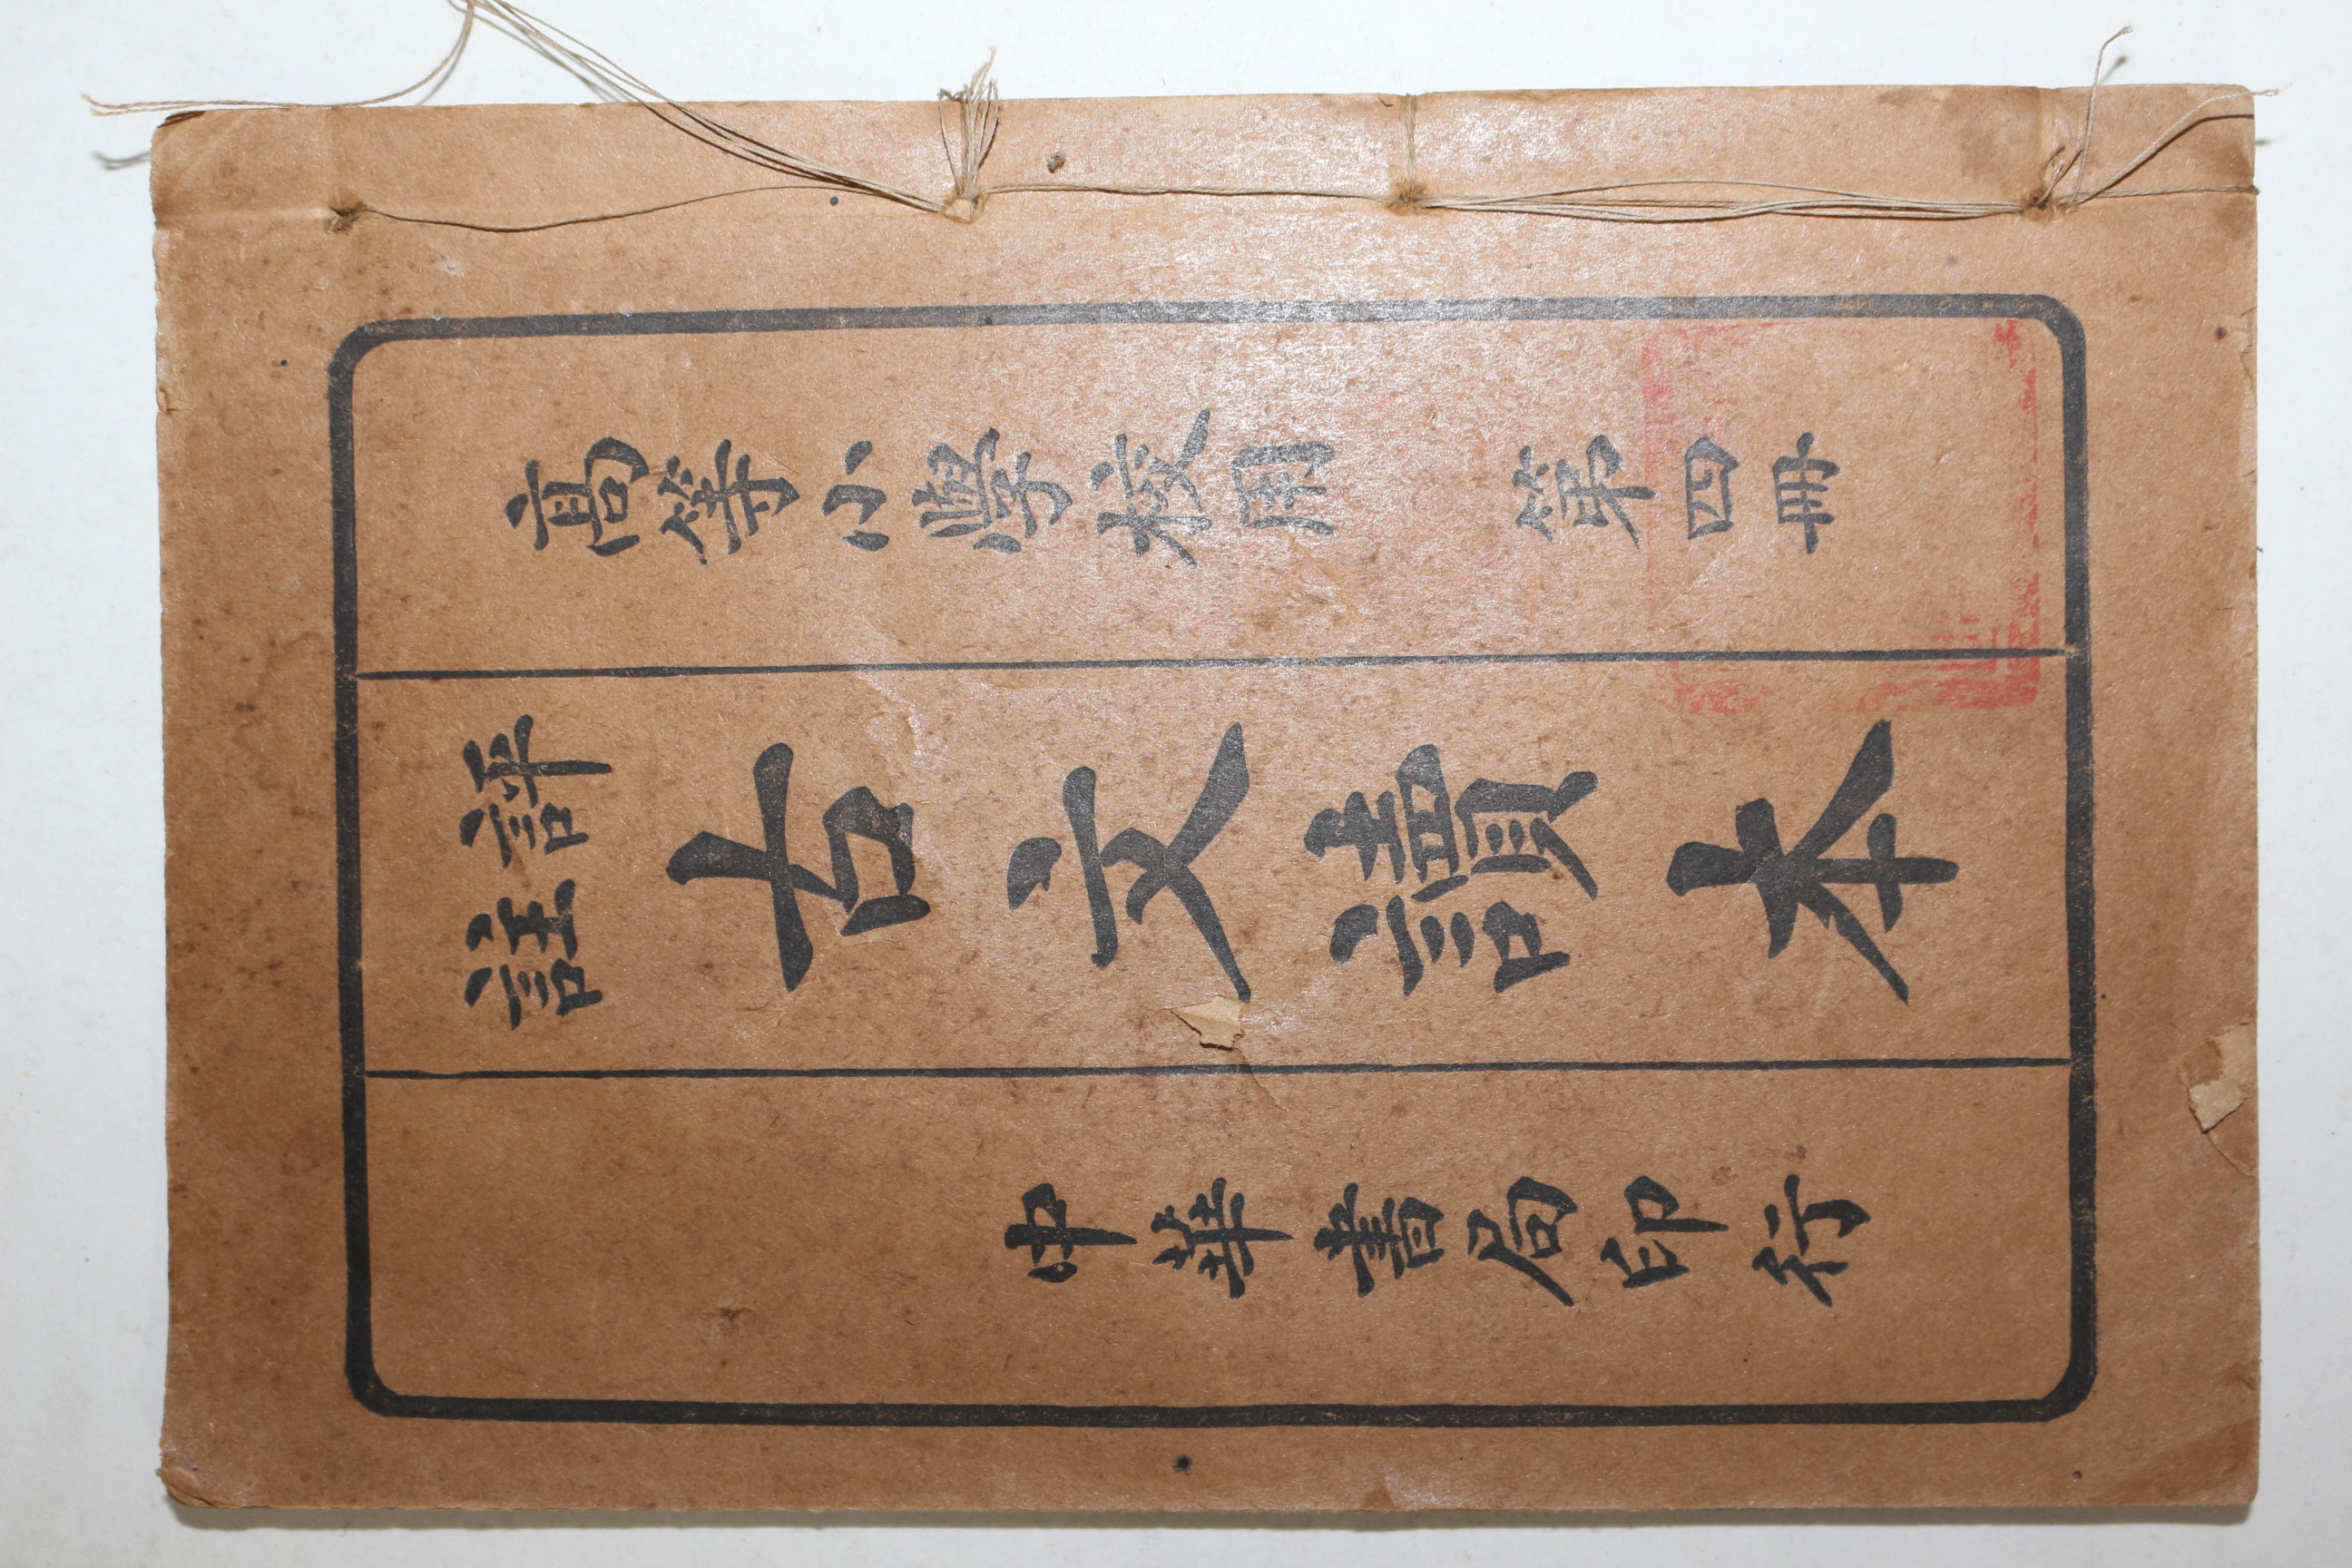 高等小學校用 第四冊
評註古文讀本
中華書局印行